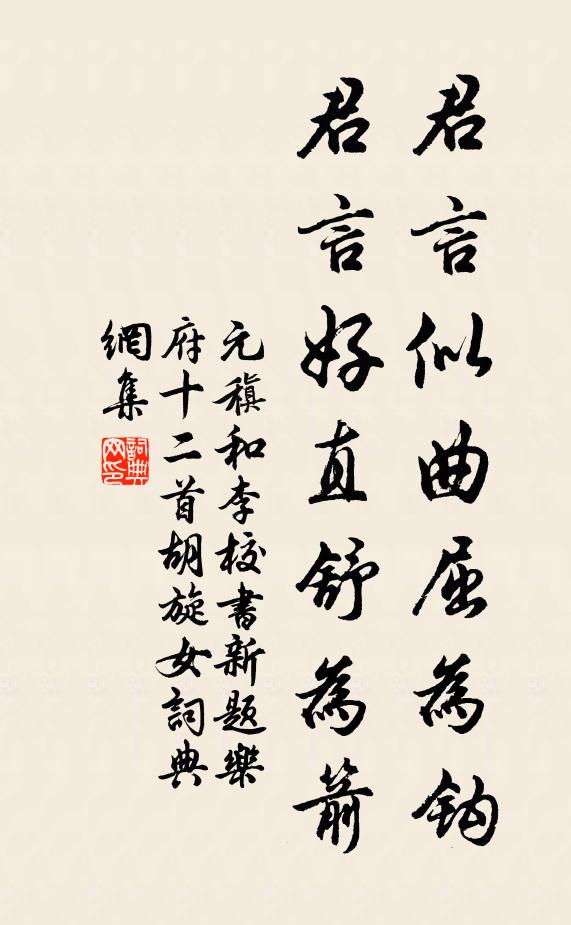 君言似曲屈為鈎
君言好直舒為箭
元稹和李校書新題樂
府十二首胡旋女詞典
網集
詞典
网印